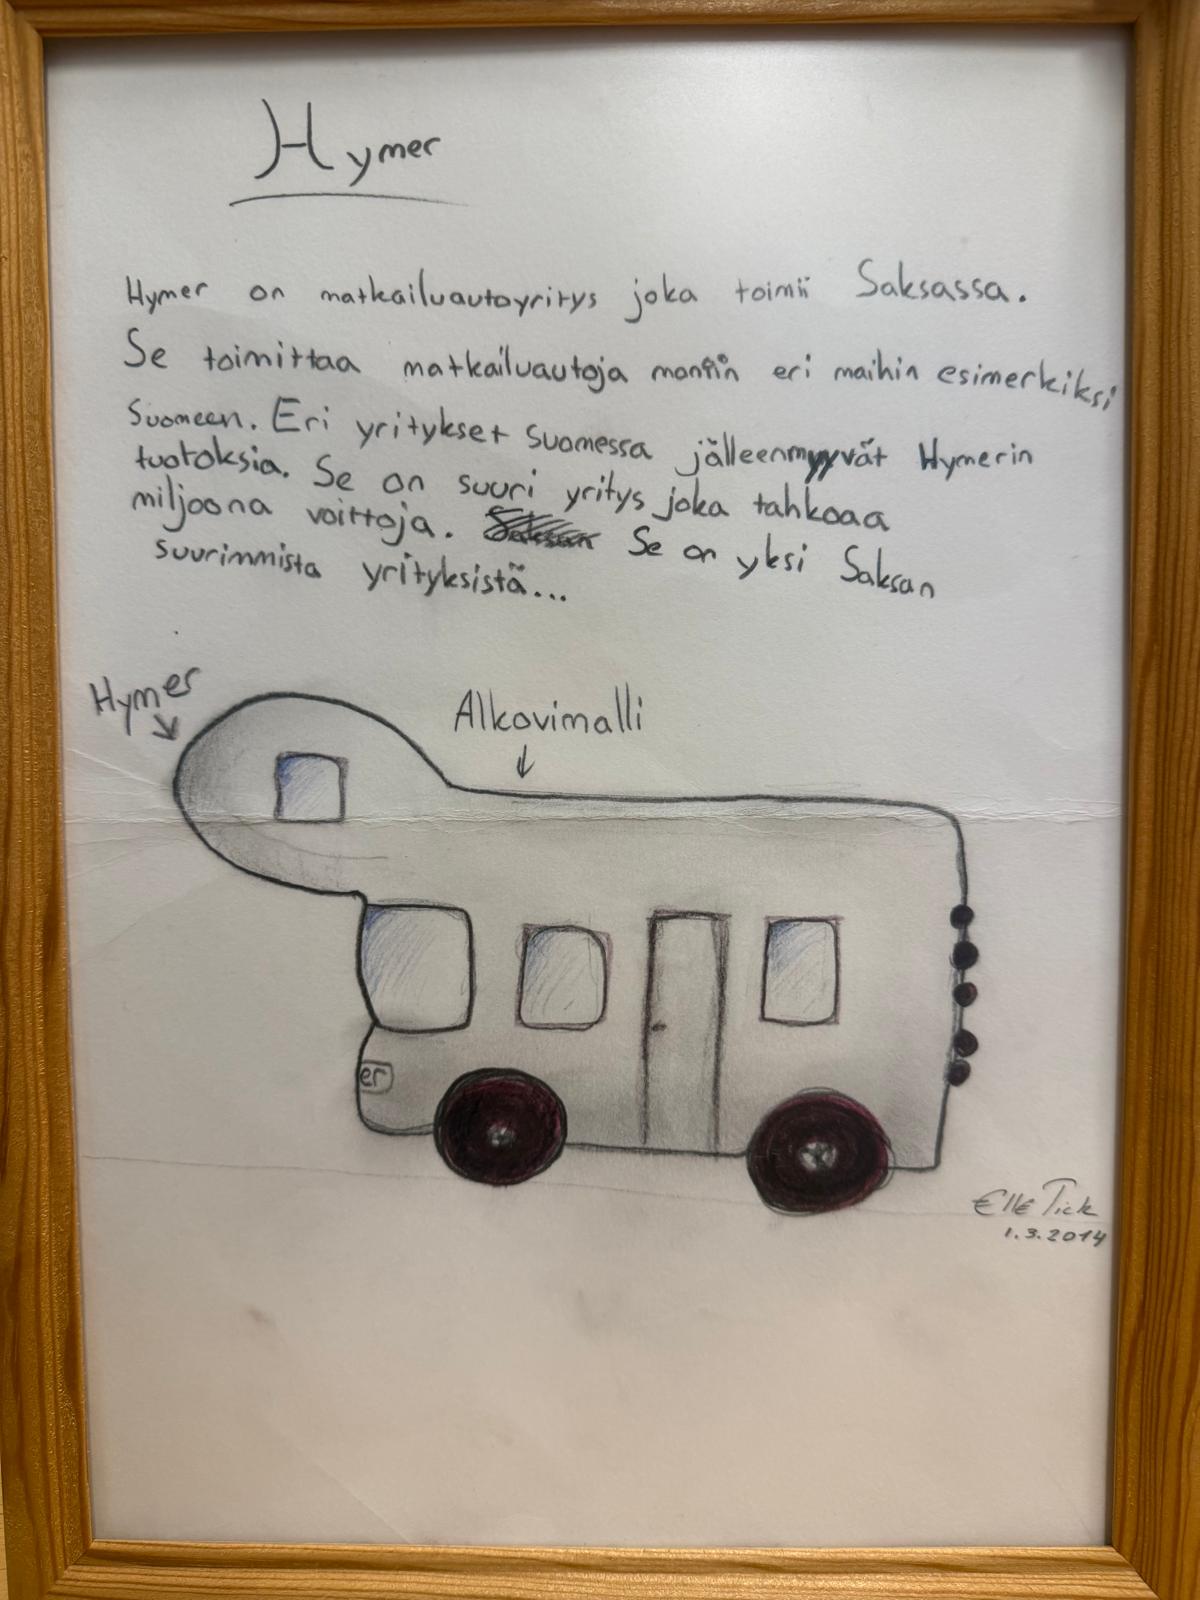 Hymer
Hymer on matkailuautoyritys joka toimii Saksassa.
Se toimittaa matkailuautoja moniin eri maihin esimerkiksi
Suomeen. Eri yritykset Suomessa jälleenmyyvät Hymerin
tuotoksia. Se on suuri yritys joka tahkoaa
miljoona voittoja. Se on yksi Saksan
suurimmista yrityksistä...
Hymer
Alkovimalli
er
Elle Tick
1.3.2014